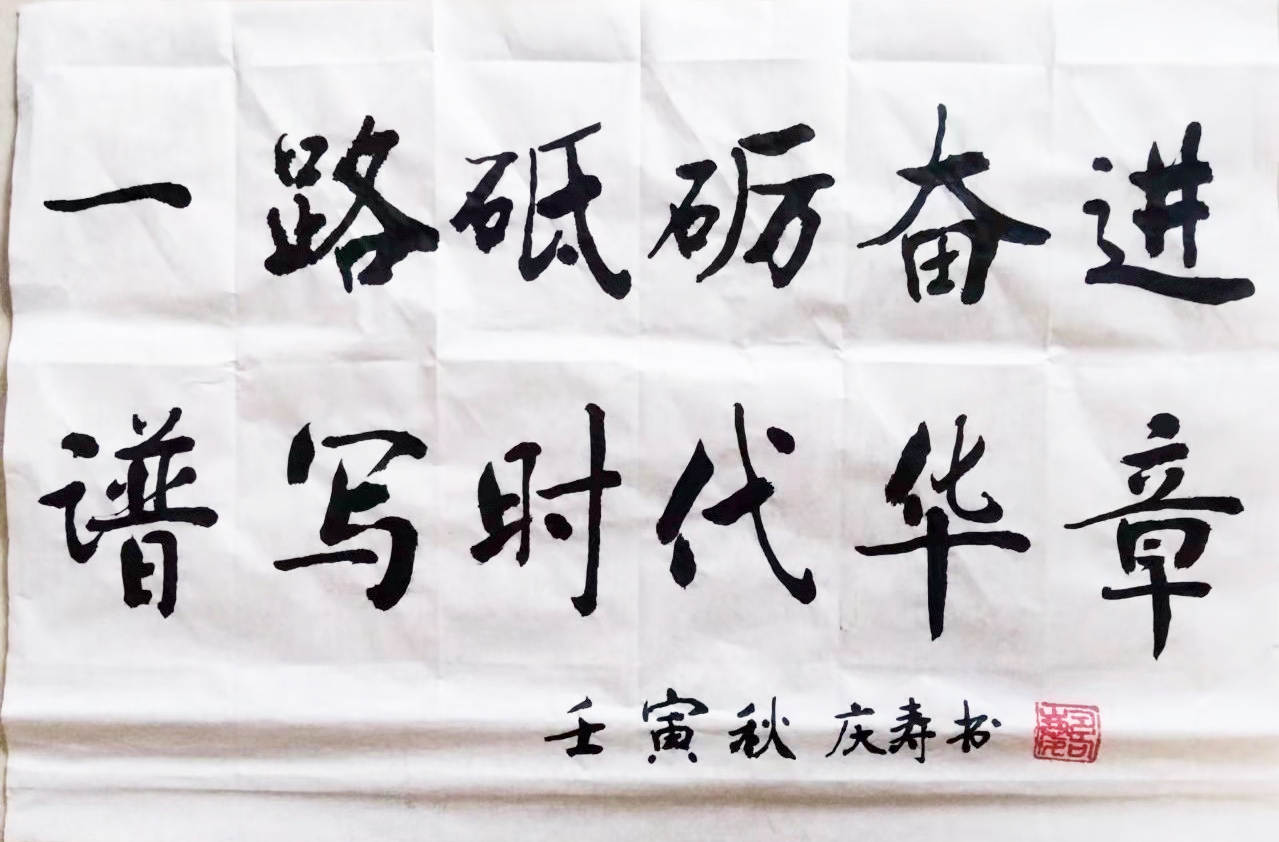 一路砥砺奋进
谱写时代华章
壬寅秋 庆寿书